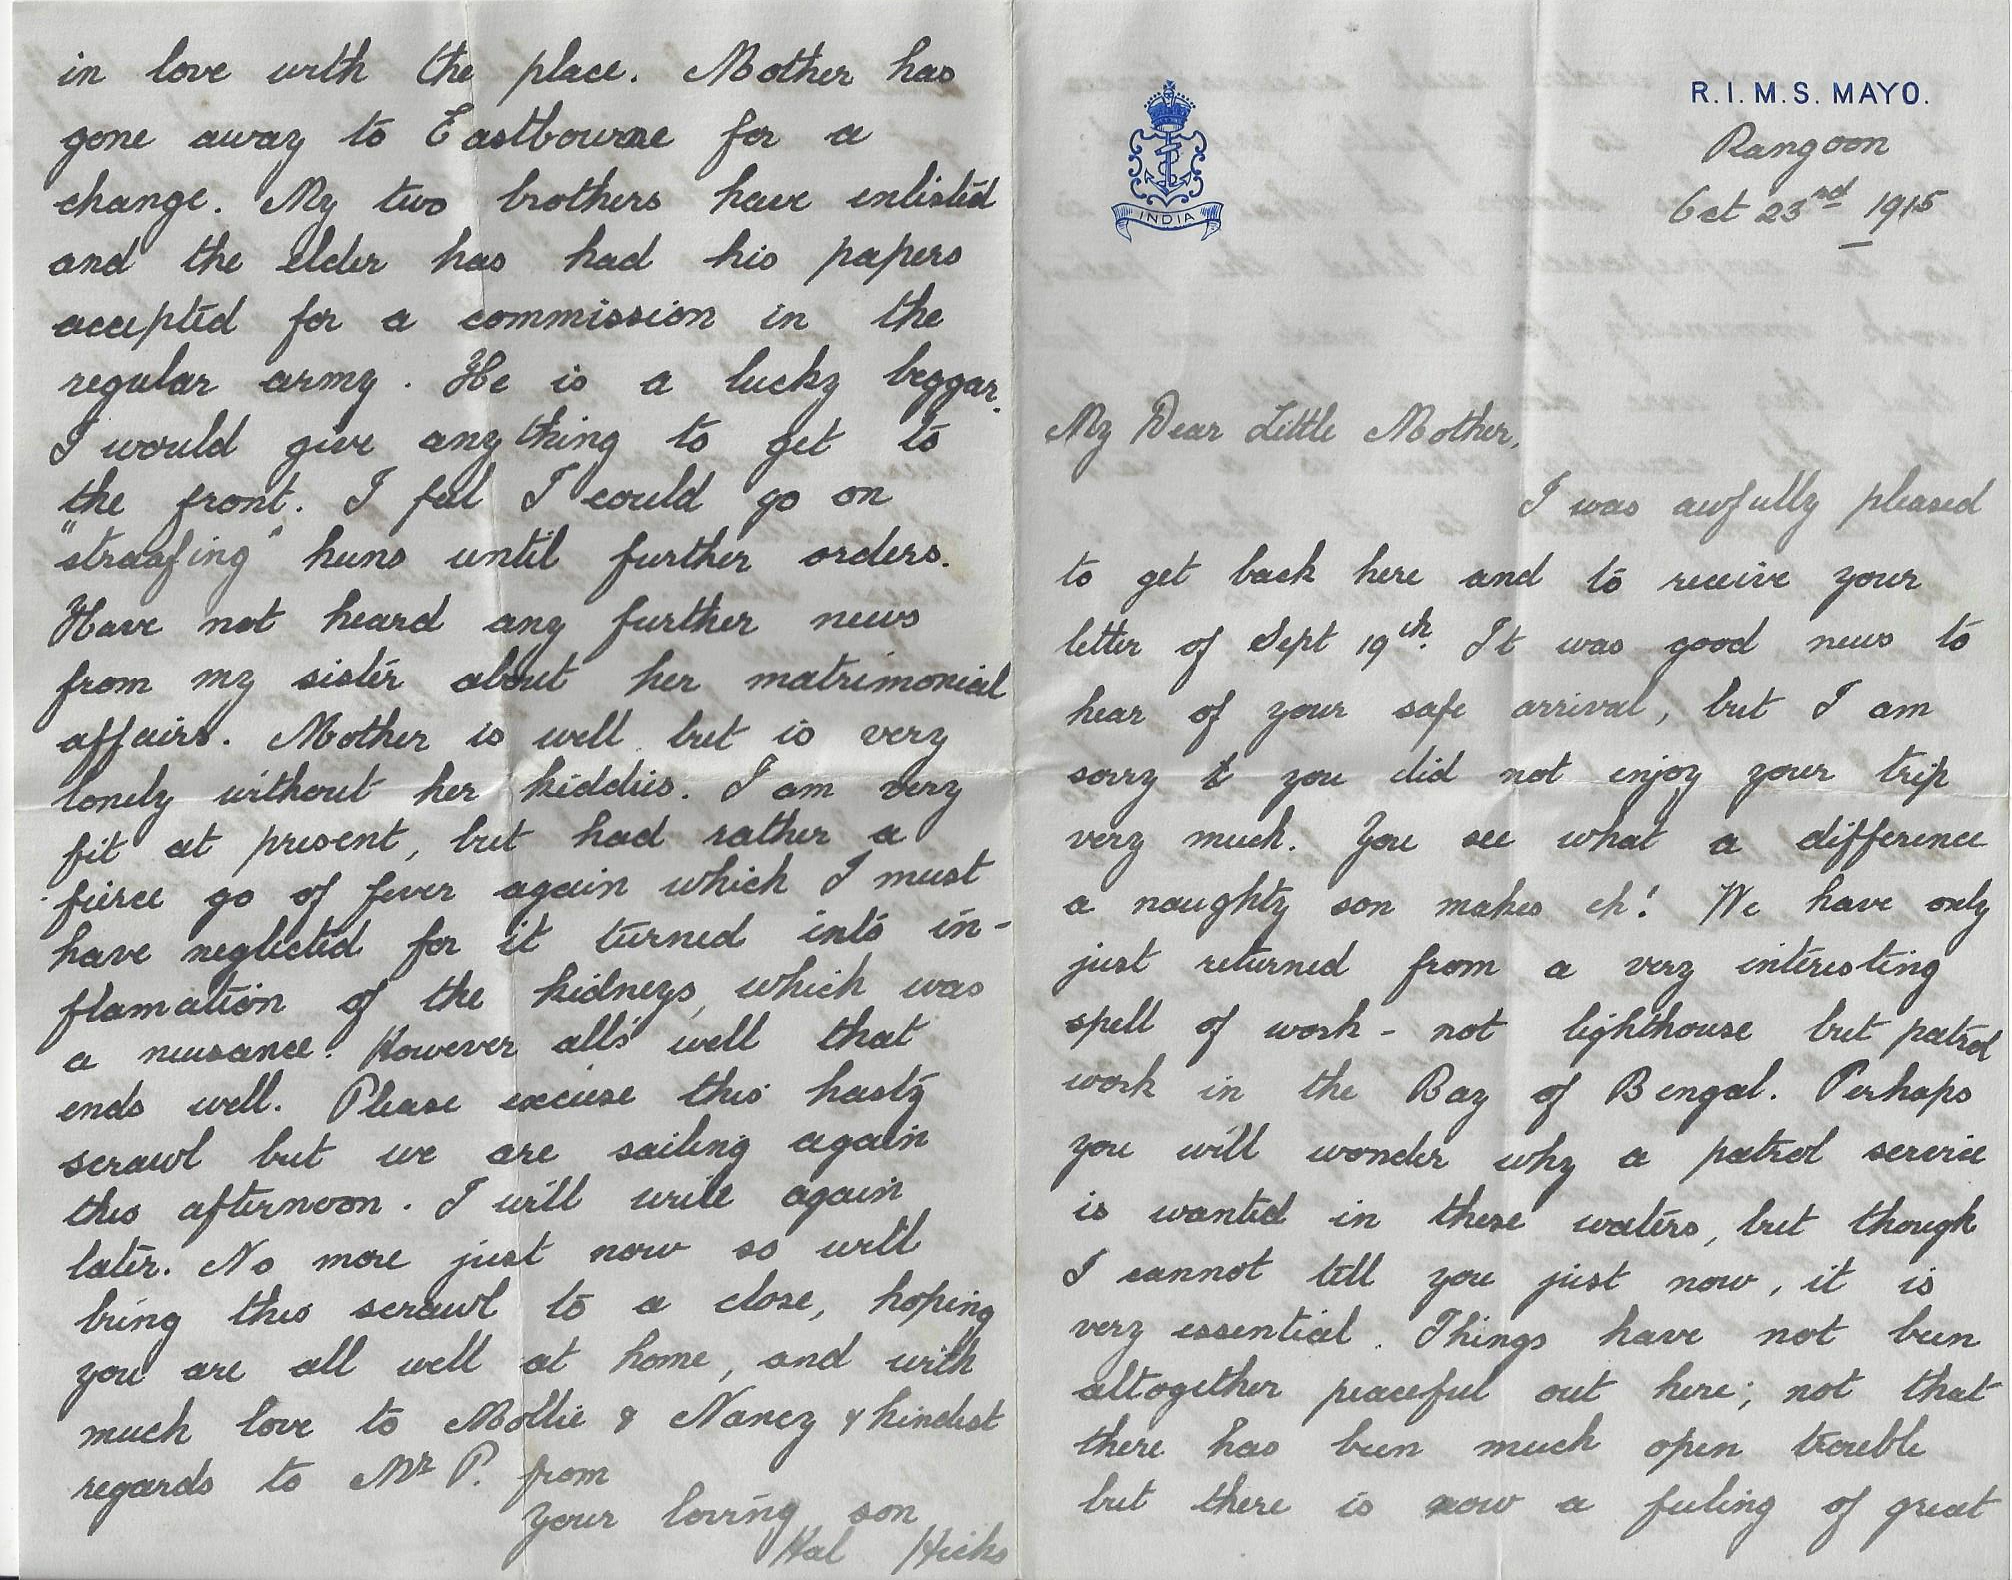 R.I.M.S. MAYO.
INDIA
Rangoon
Oct 23rd 1915
My Dear Little Mother,
I was awfully pleased
to get back here and to receive your
letter of Sept 19th. It was good news to
hear of your safe arrival, but I am
sorry you did not enjoy your trip
very much. You see what a difference
a naughty son makes eh! We have only
just returned from a very interesting
spell of work - not lighthouse but patrol
work in the Bay of Bengal. Perhaps
you will wonder why a patrol service
is wanted in these waters, but though
I cannot tell you just now, it is
very essential. Things have not been
altogether peaceful out here; not that
there has been much open trouble
but there is now a feeling of great
in love with the place. Mother has
gone away to Eastbourne for a
change. My two brothers have enlisted
and the elder has had his papers
accepted for a commission in the
regular army. He is a lucky beggar.
I would give anything to get to
the front. I feel I could go on
"straafing" huns until further orders.
Have not heard any further news
from my sister about her matrimonial
affairs. Mother is well but is very
lonely without her kiddies. I am very
fit at present, but had rather a
fierce go of fever again which I must
have neglected for it turned into in-
flamation of the kidneys, which was
a nuisance. However alls well that
ends well. Please excuse this hasty
scrawl but we are sailing again
this afternoon. I will write again
later. No more just now so will
bring this scrawl to a close, hoping
you are all well at home, and with
much love to Mollie & Nancy & kindest
regards to Mr P. from
Your loving son
Hal Hicks